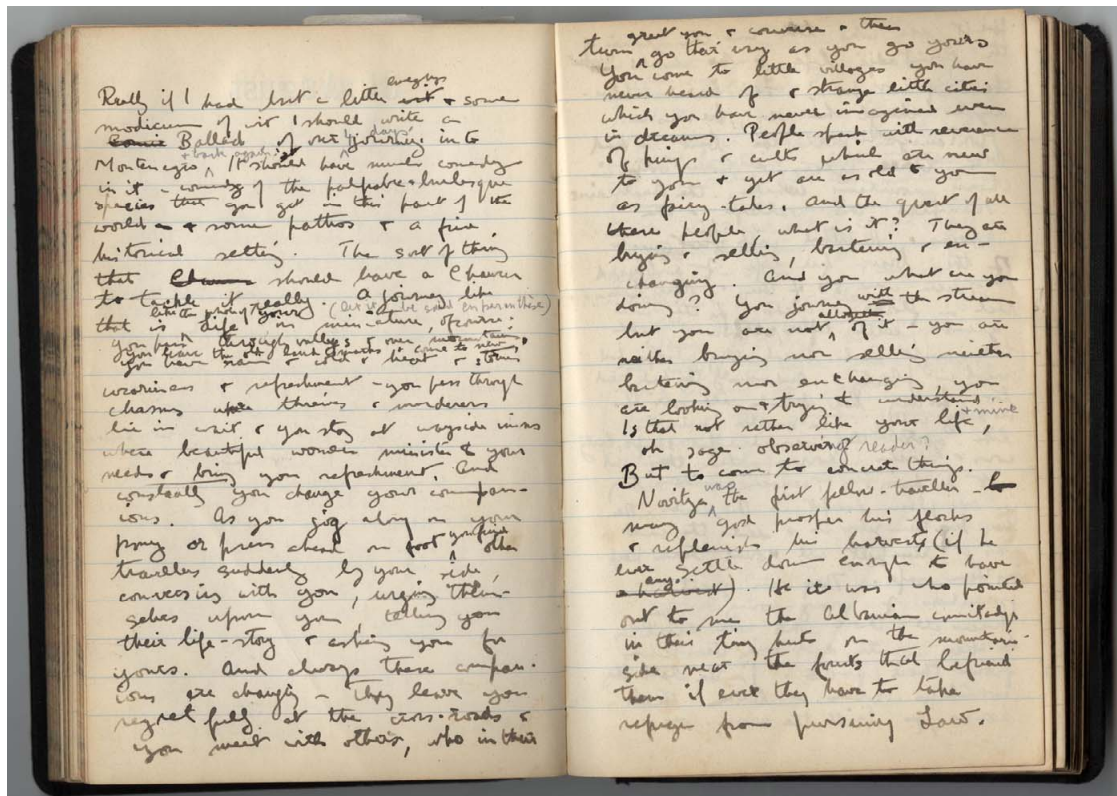 Really if I had but a little energy & some
modicum of wit I should write a
Comic Ballad of our 4 days' journey into
Montenegro & back again. It should have much comedy
in it – comedy of the palpable & burlesque
species that you get in this part of the
world – & some pathos & a fine
historical setting. The sort of thing
that Chaucer should have a Chaucer
to tackle it really. A journey like
that is like the prose of yours (as it be said en parenthèse)
life in miniature, of course:
you pass through valleys & over mountains,
you leave the old come to new,
you have rain & cold & heat & storms
weariness & refreshment – you pass through
chasms where thieves & murderers
lie in wait & you stay at wayside inns
where beautiful women minister to your
needs & bring you refreshment. And
constantly you change your compan-
ions. As you jog along on your
pony or press ahead on foot you find other
travellers suddenly by your side,
conversing with you, urging them-
selves upon you, telling you
their life-story & asking you for
yours. And always these compan-
ions are changing – they leave you
regretfully at the cross-roads &
you meet with others, who in their
turn greet you & converse & then
go their way as you go yours
You come to little villages you have
never heard of & strange little cities
which you have never imagined even
in dreams. People speak with reverence
of kings & cults which are new
to you & yet are as old to you
as fairy-tales. And the quest of all
these people, what is it? They are
buying & selling, bartering & ex-
changing. And you what are you
doing? You journey with the stream
but you are not of it – you are
neither buying nor selling neither
bartering nor exchanging, you
are looking on & trying to understand.
Is that not rather like your life, & mine
oh sage observing reader?
But to come to concrete things.
Novitza was the first fellow-traveller –
may god prosper his flocks
& replenish his harvests (if he
ever settle down enough to have
any a harvest). He it was who pointed
out to me the Albanian
in their tiny huts on the mountain-
side near the forests that befriend
them if ever they have to take
refuge from pursuing Law.